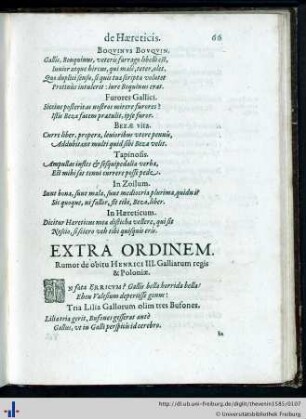 de Hæreticis.
66
BOQVINVS BOVQVIN.
Gallis, Bouquinus, veteris suffrago libelli est,
Iunior atque hircus, qui malè, teter, olet.
Quo duplici sensu, si quis tua scripta volutet
Protinus intulerit: iure Boquinus erat.
Furores Gallici.
Sitiens posteritas nostros mirere furores?
Isthic Beza furens pratulit, ipse furor.
BEZÆ vita.
Curre liber, propera, levioribus utere pennis,
Addubitant multi quid sibi Beza velit.
Tapinosis.
Ampullas instes & sesquipedalia verba,
Est mihi sat tenui currere posse pede.
In Zoilum.
Sunt bona, sunt mala, sunt mediocria plurima, quidni?
Sis quoque, ni fallor, sic tibi, Beza, liber.
In Hæreticum.
Dicitur Hæreticus mea disticha vellere, qui sit
Nescio, si sciero vah tibi quisquis eris.
EXTRA ORDINEM.
Rumor de obitu HENRICI III. Galliarum regis
& Poloniæ.
IN fata ERRICVM? Gallis bella horrida bella!
Eheu Valesium deperiisse genus!
Tria Lilia Gallorum olim tres Bufones.
Lilia tria gerit, Bufones gesserat antè
Gallus, ut in Galli perspicis id cerebro.
In
http://dl.ub.uni-freiburg.de/diglit/thevenin1585/0107